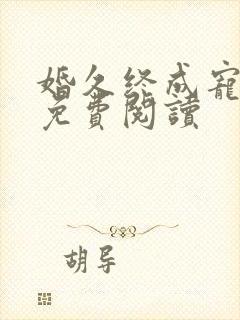 婚久终成寵
免費閱讀
胡导